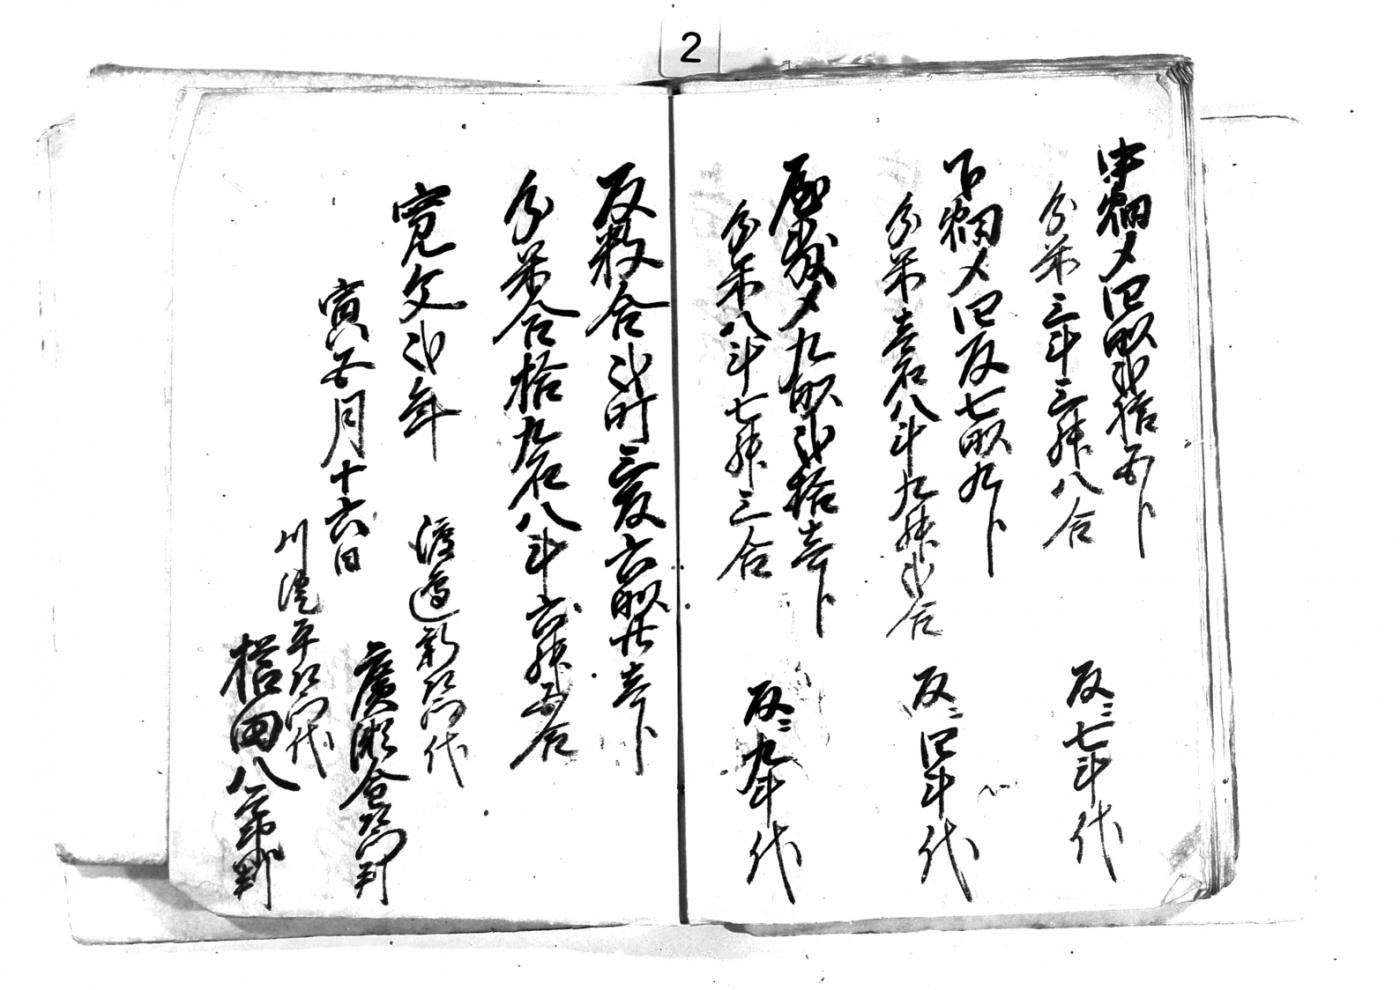 2
中畑〆四畝弐拾五卜
分米三斗三升八合
反ニ七斗代
下畑〆四反七畝九卜
分米壱石八斗九升弐合
反ニ四斗代
屋敷〆九畝弐拾壱卜
分米八斗七升三合
反ニ九斗代
反数合弐町三反六畝廿壱卜
分米合拾九石八斗六升五合
寛文弐年
寅五月十六日
渡辺新左衛門代
廣瀬金左衛門判
川澄平左衛門代
八郎判